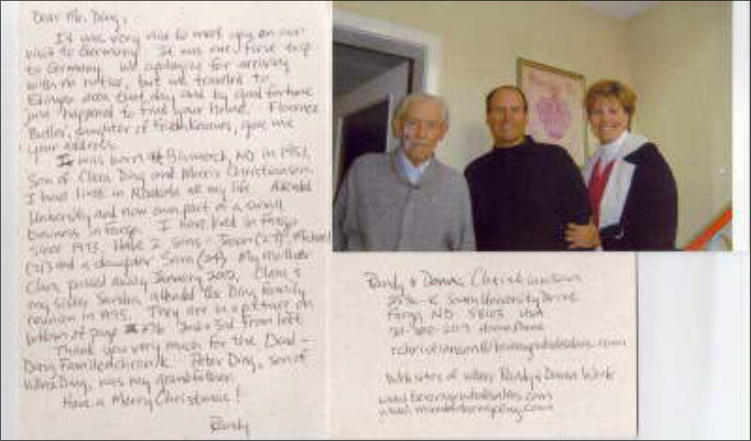 Dear Mr. Ding,
It was very nice to meet you on our
visit to Germany. It was our first trip
to Germany. We apologize for arriving
with no notice, but we traveled to
area that day and by good fortune
just happened to find your home. Florence
Butler, daughter of, gave me
your address.
I was born in Bismarck, ND in 1951,
Son of Clara Ding and Christianson.
I have lived in N Dakota all my life. Attended
University and now own part of a small
business in Fargo. I have lived in Fargo
since 1973. Have 2 sons - Jason (27), Michael
(31) and a daughter Sara (24). My mother
Clara, passed away January 2002. Clara &
my sister Sandra attended the Ding Family
reunion in 1995. They are in a picture on
bottom of page 2nd & 3rd from left
Thank you very much for the
Ding Familienchronik. Peter Ding, son of
Ding, was my grandfather.
Have a Merry Christmas!
Randy
Randy & Donna Christianson
South University Drive
Fargo ND 58103 USA
home phone
Web sites of where Randy & Donna Work